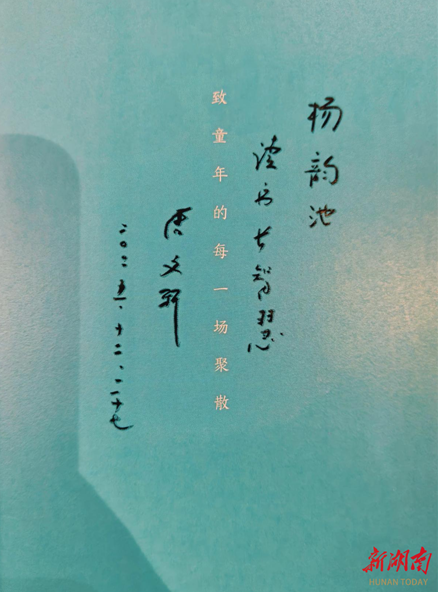 杨韵池
读书长智慧
致童年的每一场聚散
二〇二五.十二.二十七
新湖南
HUNAN TODAY